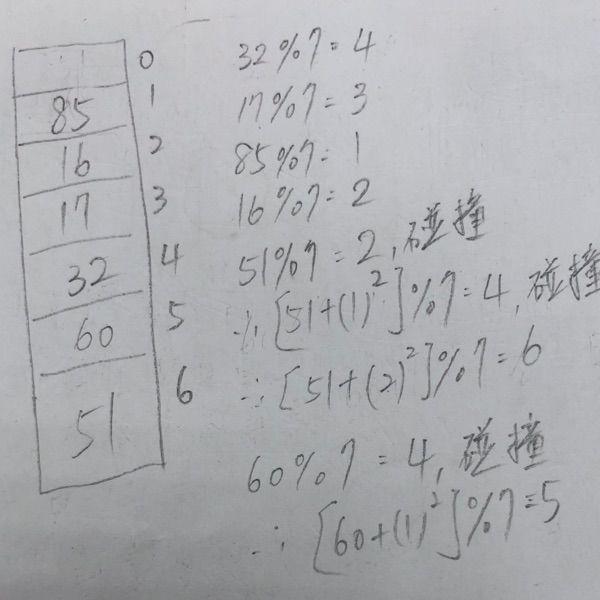 0
85 1
16 2
17 3
32 4
60 5
51 6
32%7=4
17%7=3
85%7=1
16%7=2
51%7=2,碰撞
∴[51+(1)²]%7=4,碰撞
∴[51+(2)²]%7=6
60%7=4,碰撞
∴[60+(1)²]%7=5